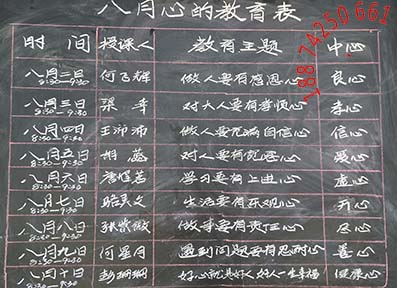 八月心的教育表
时间 授课人 教育主题 中心
18874250661
八月二日 8:30—9:30 何飞辉 做人要有感恩心 良心
八月三日 8:30—9:30 张 对大人要有孝顺心 孝心
八月四日 8:30—9:30 王沛沛 做人要充满自信心 信心
八月五日 8:30—9:30 胡蕊 对人要有宽恕心 爱心
八月六日 8:30—9:30 学习要有上进心 虚心
八月七日 8:30—9:30 生活要有乐观心 开心
八月八日 8:30—9:30 张 做事要有责任心 尽心
八月九日 8:30—9:30 何星月 遇到问题要有忍耐心 善心
八月十日 8:30—9:30 彭珊珊 好心就是好人好人一生幸福 健康心